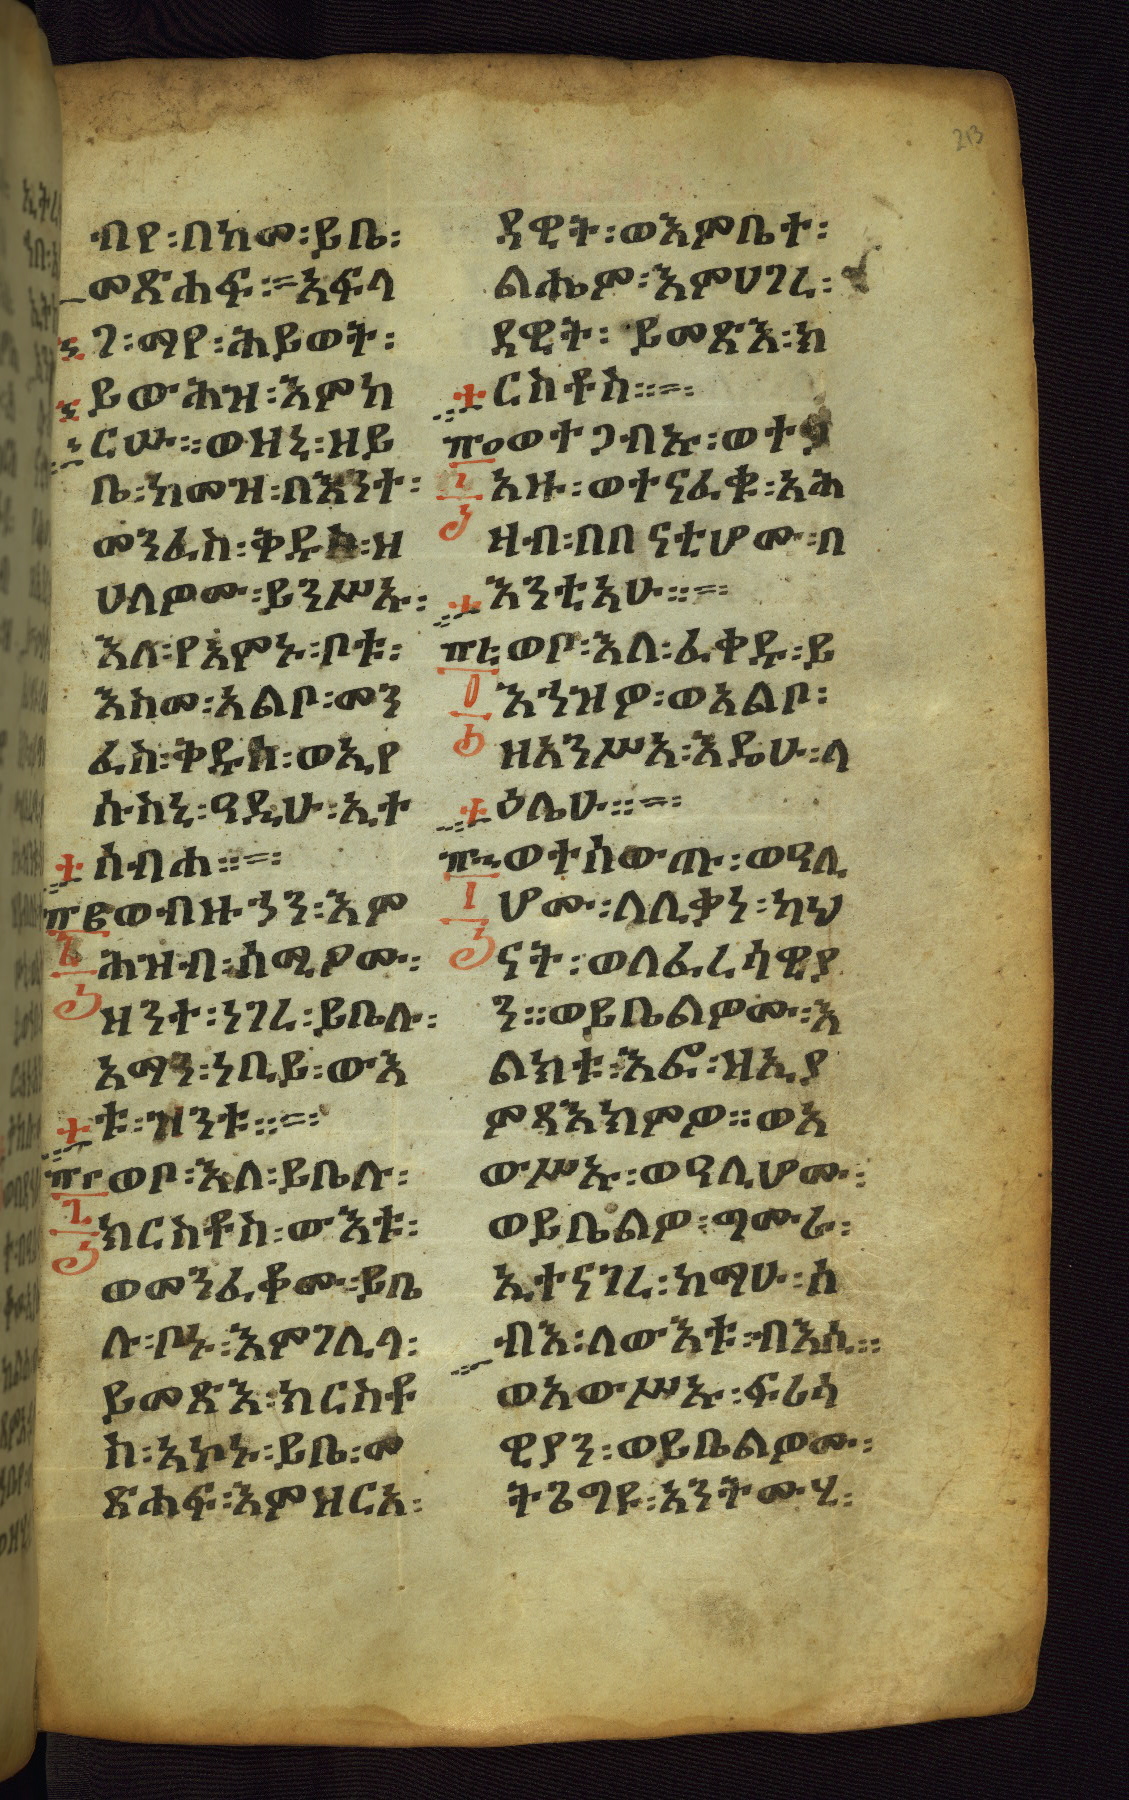 ብየ፡በከመ፡ይቤ፡
መጽሐፍ፡=አፍላ
ገ፡ማየ፡ሕይወት፡
ይውሕዝ፡እምከ
ርሡ፡፡ወዝኒ፡ዘይ
ቤ፡ከመዝ፡በእንተ፡
መንፈስ፡ቅዱስ፡ዘ
ሀለዎሙ፡ይንሥኡ፡
እለ፡የአምኑ፡ቦቱ፡
እስመ፡አልቦ፡መን
ፈስ፡ቅዱስ፡ወኢየ
ሱስኒ፡ዓዲሁ፡ኢተ
ሰብሐ፡፡=፡
ወብዙኃን፡እም
ሕዝብ፡ሰሚዖሙ፡
ዘንተ፡ነገረ፡ይቤሉ፡
አማን፡ነቢይ፡ውእ
ቱ፡ዝንቱ፡፡=፡
ወቦ፡እለ፡ይቤሉ፡
ክርስቶስ፡ውእቱ፡
ወመንፈቆሙ፡ይቤ
ሉ፡ቦኑ፡እምገሊላ፡
ይመጽእ፡ክርስቶ
ስ፡አኮኑ፡ይቤ፡መ
ጽሐፍ፡እምዘርአ፡
ዳዊት፡ወእምቤተ፡
ልሔም፡እምሀገረ፡
ዳዊት፡ ይመጽእ፡ክ
ርስቶስ፡፡=፡
ወተጋብኡ፡ወተ
አዙ፡ወተናፈቁ፡አሕ
ዛብ፡በበናቲሆሙ፡በ
እንቲአሁ፡፡=፡
ወቦ፡እለ፡ፈቀዱ፡ይ
እኅዝዎ፡ወአልቦ፡
ዘአንሥአ፡እዴሁ፡ላ
ዕሌሁ፡፡=፡
ወተሰውጡ፡ወዓሊ
ሆሙ፡ለሊቃነ፡ካህ
ናት፡ወለፈሪሳዊያ
ን፡፡ወይቤልዎሙ፡እ
ልክቱ፡እፎ፡ዘኢያ
ምጻእክምዎ፡፡ወአ
ውሥኡ፡ወዓሊሆሙ፡
ወይቤልዎ፡ግሙራ፡
ኢተናገረ፡ከማሁ፡ሰ
ብእ፡ለውእቱ፡ብእሲ፡፡
ወአውሥኡ፡ፍሪሳ
ዊያን፡ወይቤልዎሙ፡
ትጌግዩ፡አንትሙሂ፡
213